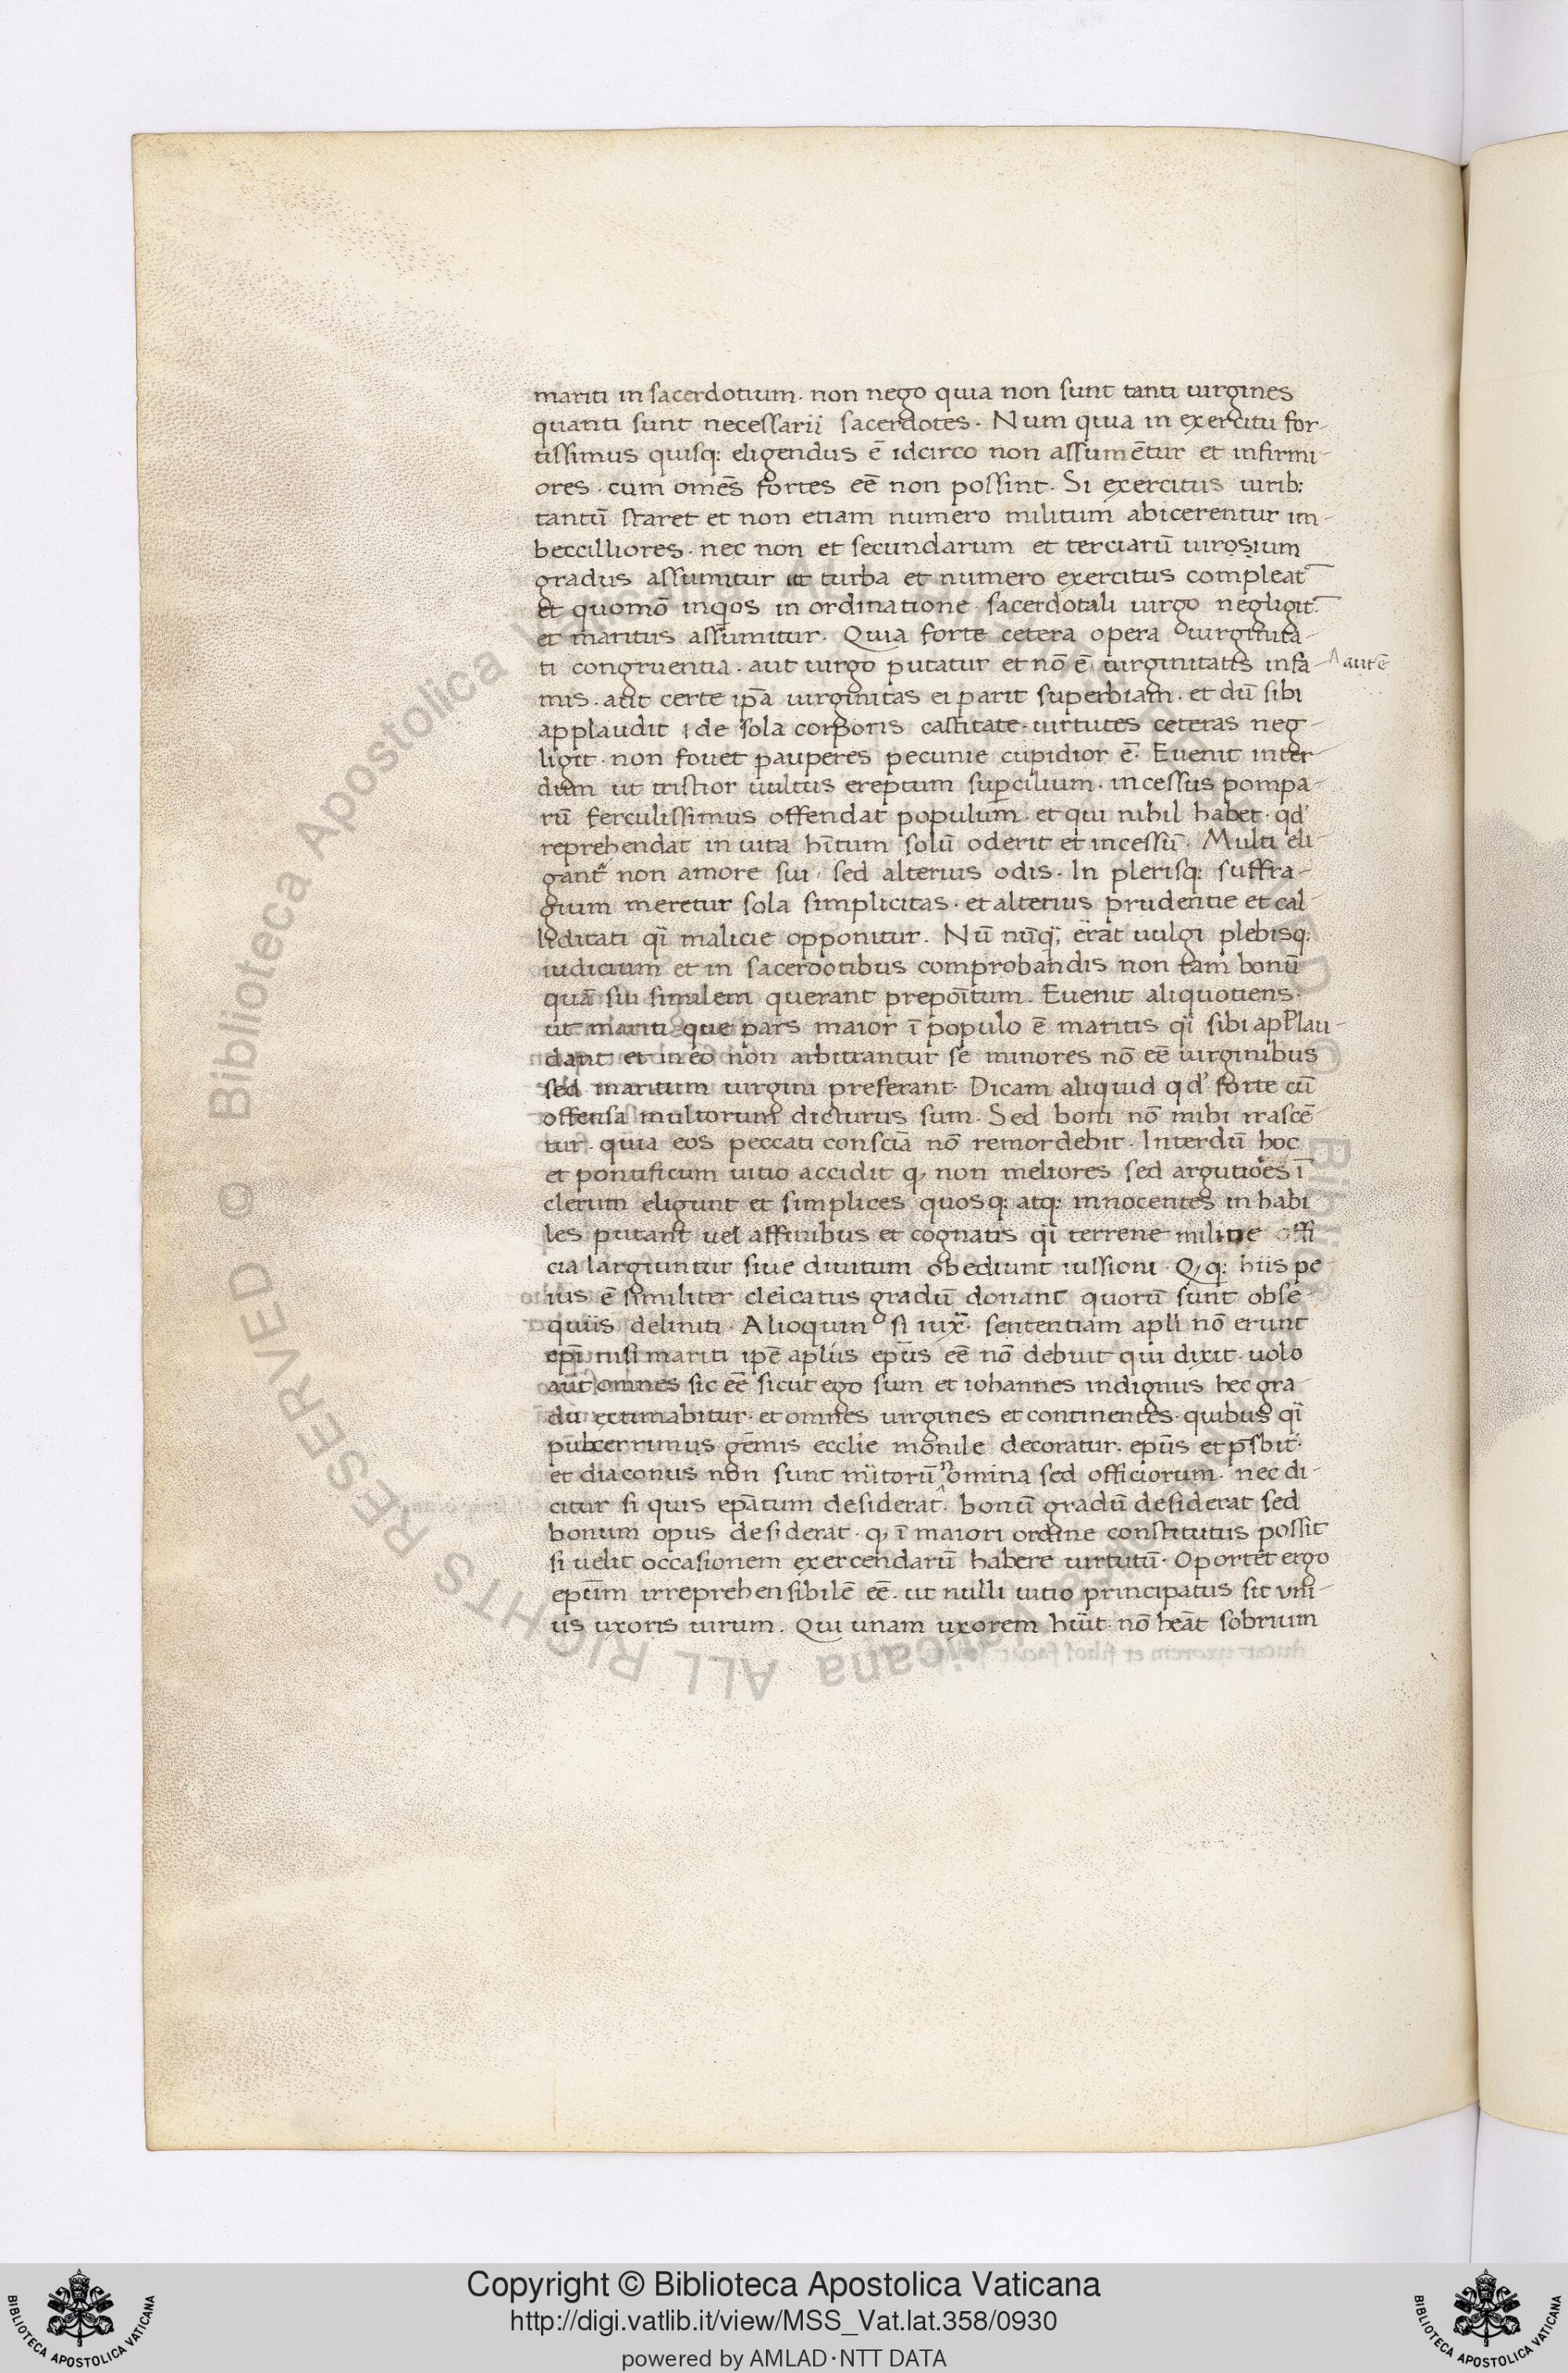 mariti in sacerdotium. non nego quia non sunt tanti uirgines
quanti sunt necessarii sacerdotes. Num quia in exercitu for-
tissimus quisq: eligendus ē idcirco non assumētur et infirmi-
ores. cum omēs fortes eē non possint. Si exercitus uirib:
tantū staret et non etiam numero militum abicerentur im-
beccilliores. nec non et secundarum et terciarū uirosium
gradus assumitur ut turba et numero exercitus compleat̄
et quomō inqios in ordinatione sacerdotali uirgo negligit̄.
et maritus assumitur. Quia forte cetera opera uirginita-
ti congruentia. aut uirgo putatur et nō ē uirginitatis infa- aut ē
mis. aut certe ip̄a uirginitas ei parit superbiam. et dū sibi
applaudit de sola corporis castitate uirtutes ceteras neg-
ligit. non fouet pauperes pecunie cupidior ē. Euenit inter-
dum ut tristior uultus ereptum sup̱cilium. incessus pompa-
rū ferculissimus offendat populum. et qui nihil habet. qd'
reprehendat in uita hītum solū oderit et incessū. Multi eli-
gant̄ non amore sui. sed alterius odis. In plerisq: suffra-
gium meretur sola simplicitas. et alterius prudentie et cal-
liditati q̄i malicie opponitur. Nū nūq̄, errat uulgi plebisq:
iudicium et in sacerdotibus comprobandis non tam bonū
quā sui similem querant prepoītum. Euenit aliquotiens.
ut mariti que pars maior ī populo ē maritis q̄i sibi applau-
dant et in eo non arbitrantur se minores nō eē uirginibus
sed maritum uirgini preferant. Dicam aliquid qd' forte cū
offensa multorum dicturus sum. Sed boni nō mihi irascē-
tur. quia eos peccati consciā nō remordebit. Interdū hoc
et pontificum uitio accidit q, non meliores sed argutiores ī
clerum eligunt et simplices quosq: atq: innocentes inhabi
les putant uel affinibus et cognatis q̄i terrene militie offi
cia largiuntur siue diuitum obediunt iussioni. Q,q: hiis pe
ius ē similiter cleicatus gradū donant quorū sunt obse-
quiis deliniti. Alioquin si iux̄. sententiam apl'i nō erunt
ep̄i nisi mariti ip̄e apl'us ep̄us eē nō debuit qui dixit. uolo
aut̄ omnes sic eē sicut ego sum et iohannes indignus hec gra-
du extimabitur. et omnes uirgines et continentes. quibus q̄i
pulcerrimus gēmis ecclīe monile decoratur. ep̄us et p̄sbit̄.
et diaconus non sunt mīitorū nomina sed officiorum. nec di-
citur si quis ep̄atum desiderat. bonū gradū desiderat sed
bonum opus desiderat. q, ī maiori ordine constitutus possit
si uelit occasionem exercendarū habere uirtutū. Oportet ergo
ep̄um irreprehensibilē eē. ut nulli uitio principatus sit vni-
us uxoris uirum. Qui unam uxorem hūit. nō heāt sobrium
Copyright © Biblioteca Apostolica Vaticana
http://digi.vatlib.it/view/MSS_Vat.lat.358/0930
powered by AMLAD·NTT DATA
BIBLIOTECA APOSTOLICA VATICANA
BIBLIOTECA APOSTOLICA VATICANA
© Biblioteca Apostolica Vaticana ALL RIGHTS RESERVED